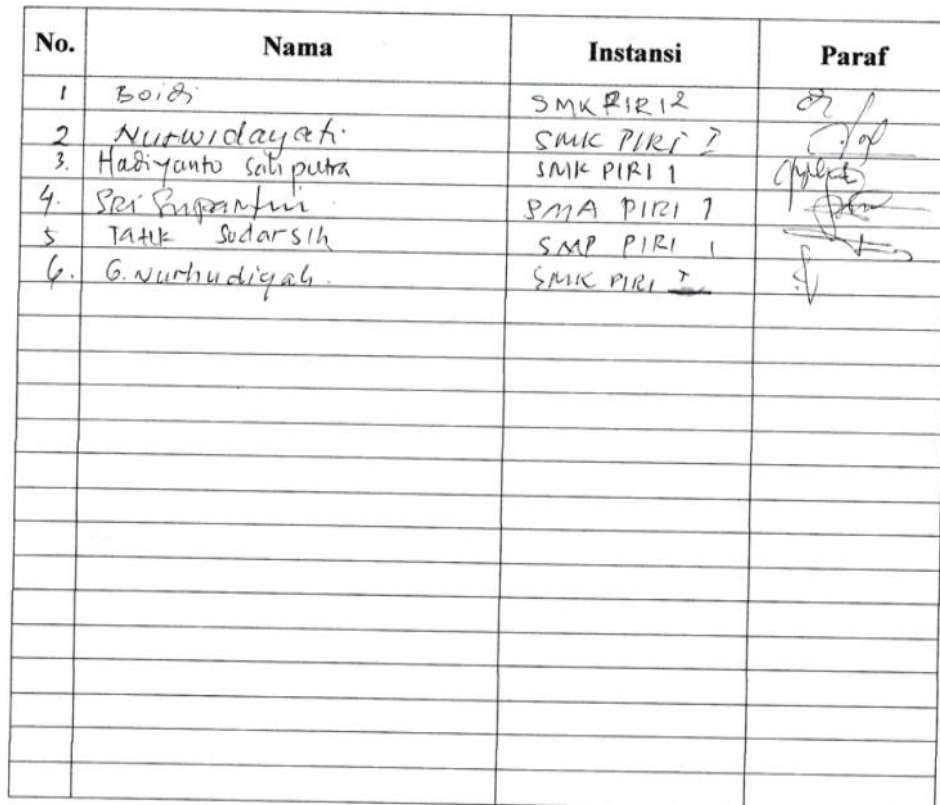 No. Nama Instansi Paraf
1 Boidi SMK PIRI 2
2 Nurwidayati. SMK PIRI I
3. Hadiyanto Satiputra SMK PIRI 1
4. Sri Supantini SMA PIRI 1
5 Tatik Sudarsih SMP PIRI 1
6. G. Nurhudiyah. SMK PIRI I